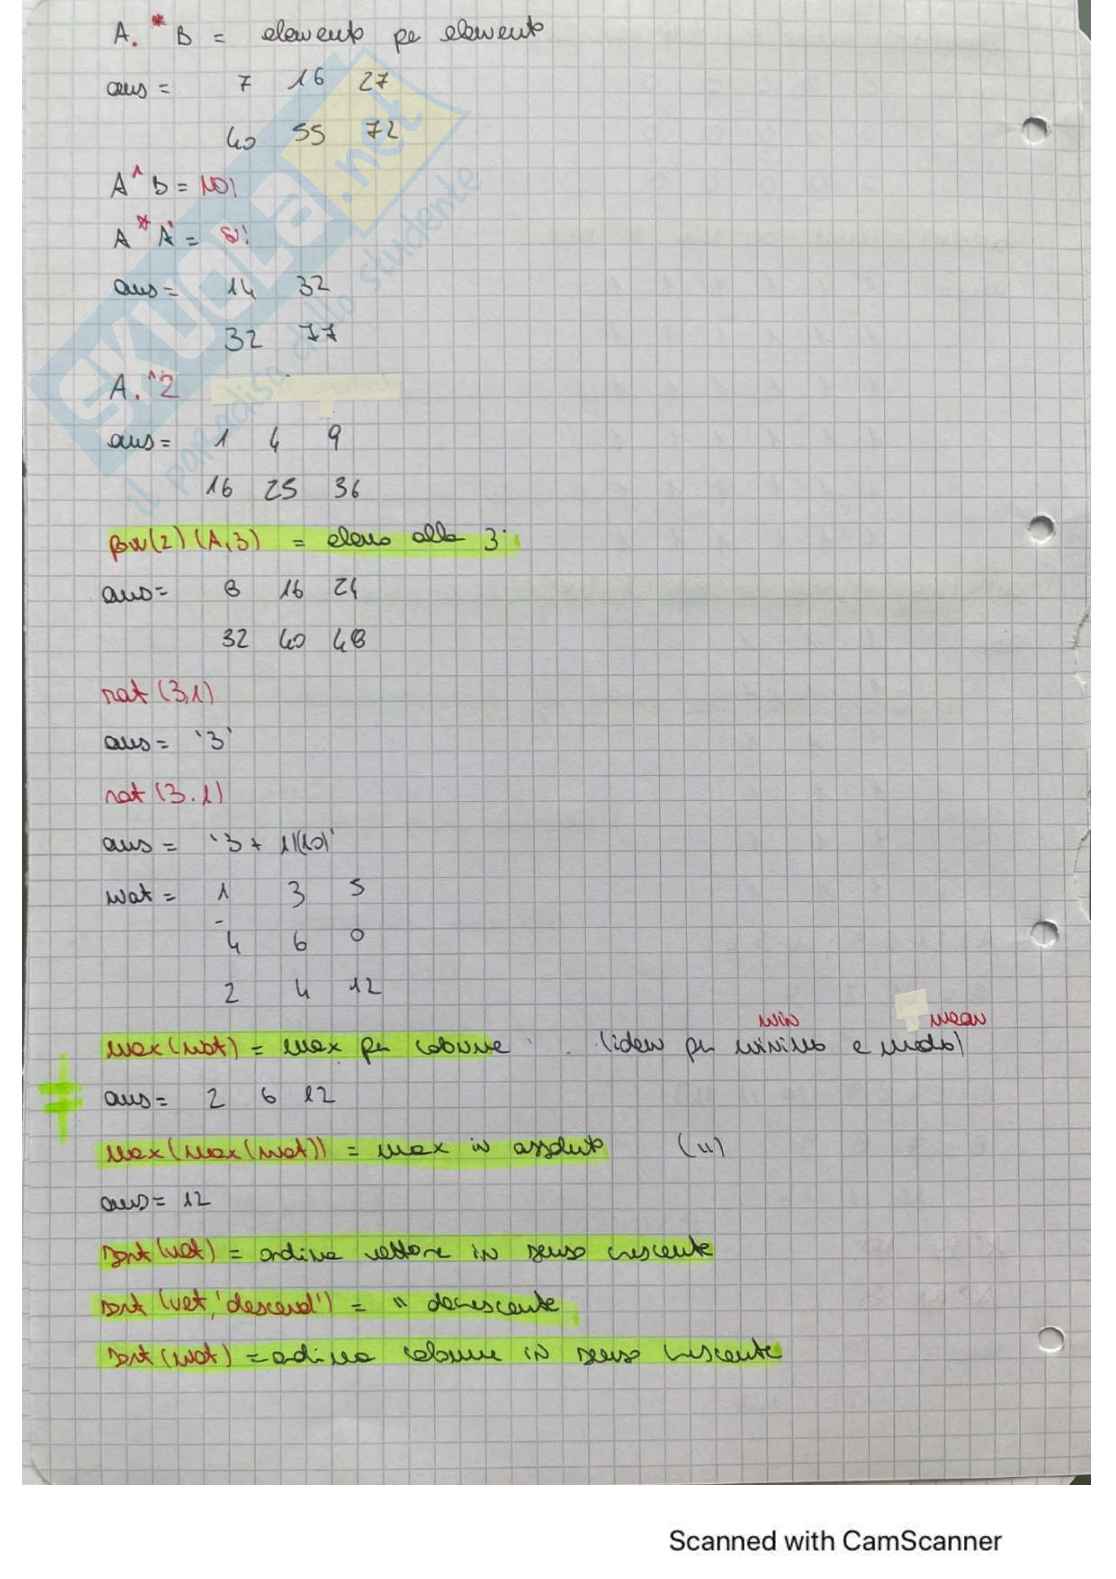 A.*B = elemento per elemento
ans = 7 16 27
40 55 72
A^B = NO!
A*A' = SI!
ans = 14 32
32 77
A.^2
ans = 1 4 9
16 25 36
pow(2)(A,3) = elevo alla 3
ans = 8 16 24
32 40 48
rat(3,1)
ans = '3'
rat(3.1)
ans = '3 + 1/(10)'
mat = 1 3 5
-4 6 0
2 4 12
min mean
max(mat) = max per colonne (idem per minimo e media)
ans = 2 6 12
max(max(mat)) = max in assoluto (")
ans = 12
sort(vet) = ordina vettore in senso crescente
sort(vet,'descend') = " decrescente
sort(mat) = ordina colonne in senso crescente
SKUOLA.net
il paradiso dello studente
Scanned with CamScanner